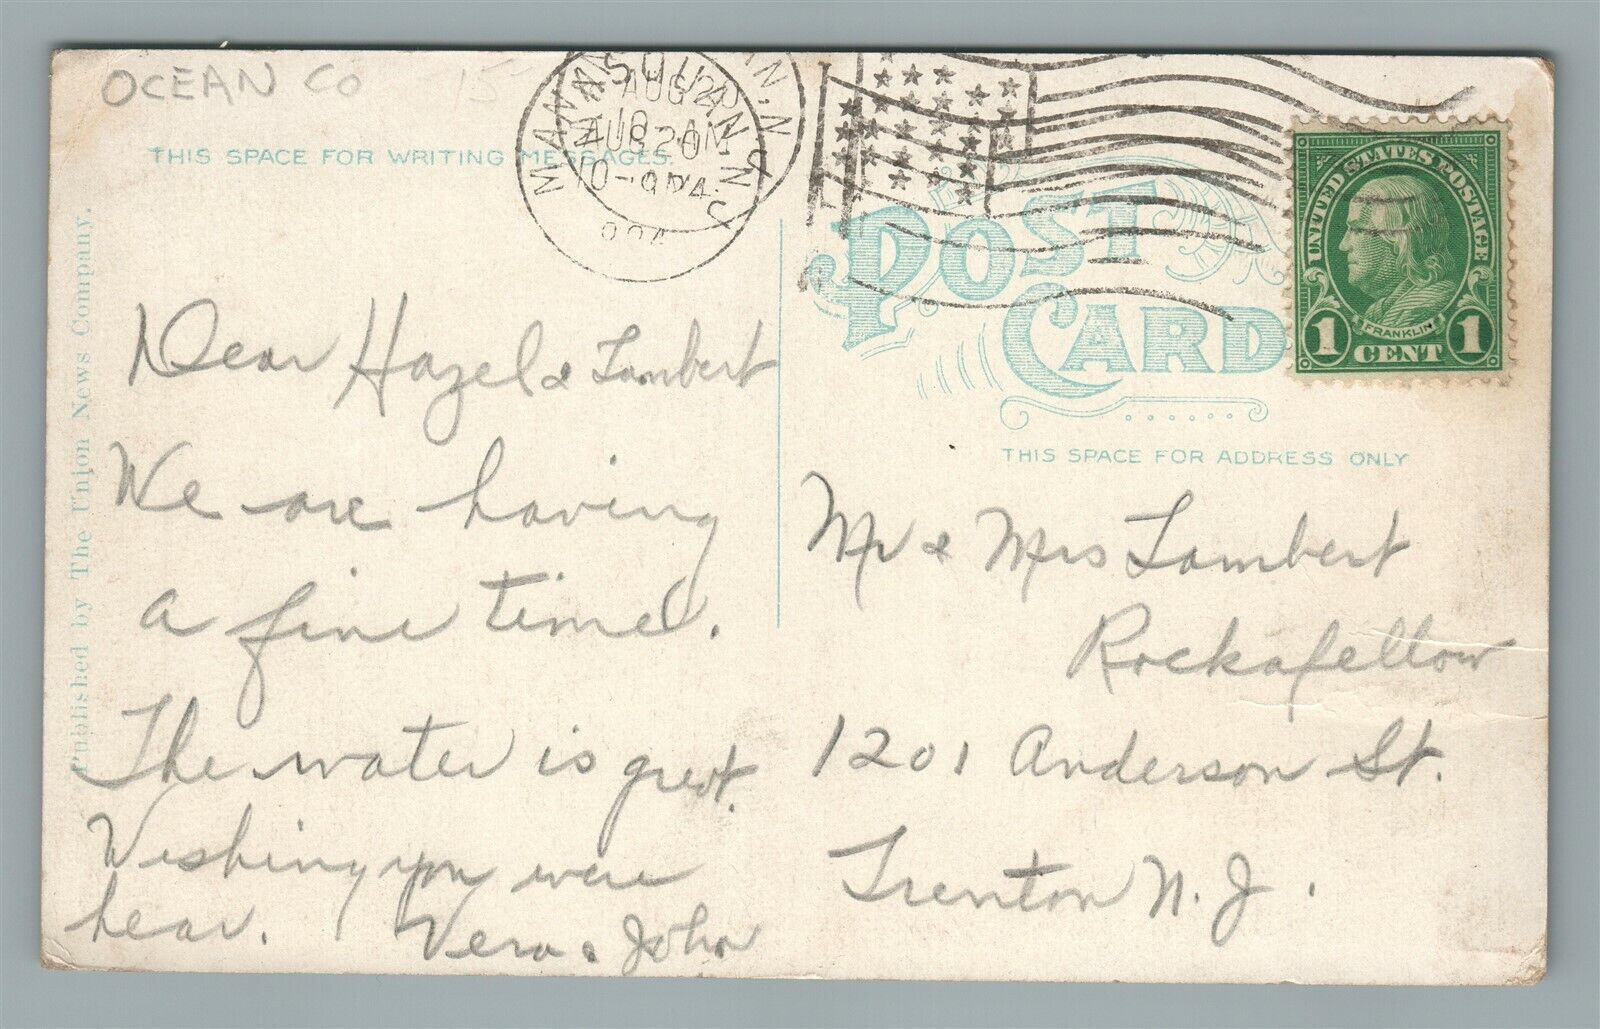 OCEAN CO 15
THIS SPACE FOR WRITING MESSAGES.
MANASQUAN, N.J.
AUG 20
10-AM
1924
POST CARD
UNITED STATES POSTAGE
FRANKLIN
1 CENT 1
THIS SPACE FOR ADDRESS ONLY
Published by The Union News Company.
Dear Hazel & Lambert
We are having
a fine time.
The water is great.
Wishing you were
hear. Vera & John
Mr & Mrs Lambert
Rockafellow
1201 Anderson St.
Trenton N. J.